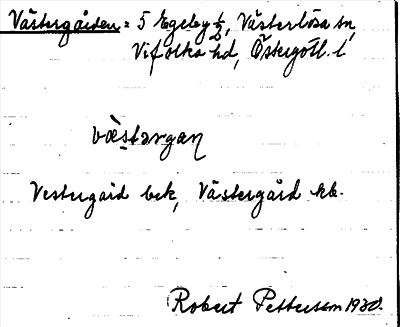 Västergården = 5 Egeby ½, Västerlösa sn,
Vifolka hd, Östergötl. l
væstərgan
Vestergård bck, Västergård kb.
Robert Pettersson 1930.